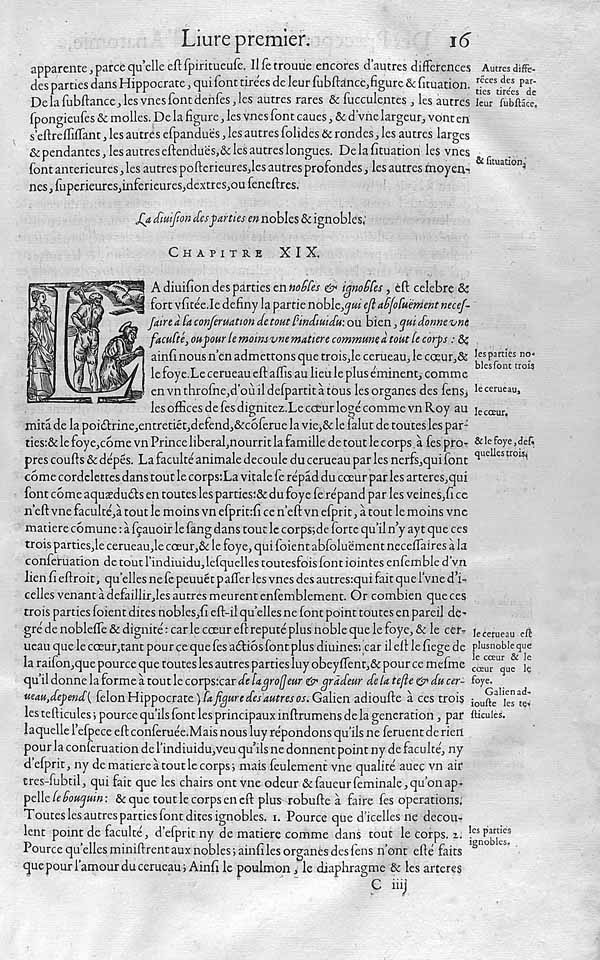 Liure premier. 16
apparente, parce qu'elle eſt ſpiritueuſe. Il ſe trouue encores d'autres differences
des parties dans Hippocrate, qui ſont tirées de leur ſubſtāce, figure & ſituation.
De la ſubſtance, les vnes ſont denſes, les autres rares & ſucculentes, les autres
ſpongieuſes & molles. De la figure, les vnes ſont caues, & d'vne largeur, vont en
s'eſtreſſiſſant, les autres eſpanduës, les autres ſolides & rondes, les autres larges
& pendantes, les autres eſtenduës, & les autres longues. De la ſituation les vnes
ſont anterieures, les autres poſterieures, les autres profondes, les autres moyen-
nes, ſuperieures, inferieures, dextres, ou ſeneſtres.
Autres diffe-
rēces des par-
ties tirées de
leur ſubſtāce,
& ſituation,
La diuiſion des parties en nobles & ignobles.
CHAPITRE XIX.
LA diuiſion des parties en nobles & ignobles, eſt celebre &
fort vſitée. Ie definy la partie noble, qui eſt abſoluëment neceſ-
ſaire à la conſeruation de tout l'indiuidu: ou bien, qui donne vne
faculté, ou pour le moins vne matiere commune à tout le corps: &
ainſi nous n'en admettons que trois, le cerueau, le cœur, &
le foye. Le cerueau eſt aſſis au lieu le plus éminent, comme
en vn throſne, d'où il deſpartit à tous les organes des ſens,
les offices de ſes dignitez. Le cœur logé comme vn Roy au
mitā de la poictrine, entretiēt, defend, & cōſerue la vie, & le ſalut de toutes les par-
ties: & le foye, cōme vn Prince liberal, nourrit la famille de tout le corps à ſes pro-
pres couſts & dépēs. La faculté animale decoule du cerueau par les nerfs, qui ſont
cōme cordelettes dans tout le corps: La vitale ſe répād du cœur par les arteres, qui
ſont cōme aquæducts en toutes les parties: & du foye ſe répand par les veines, ſi ce
n'eſt vne faculté, à tout le moins vn eſprit: ſi ce n'eſt vn eſprit, à tout le moins vne
matiere cōmune: à ſçauoir le ſang dans tout le corps; de ſorte qu'il n'y ayt que ces
trois parties, le cerueau, le cœur, & le foye, qui ſoient abſoluëment neceſſaires à la
conſeruation de tout l'indiuidu, leſquelles toutesfois ſont iointes enſemble d'vn
lien ſi eſtroit, qu'elles ne ſe peuuēt paſſer les vnes des autres: qui fait que l'vne d'i-
celles venant à defaillir, les autres meurent enſemblement. Or combien que ces
trois parties ſoient dites nobles, ſi eſt-il qu'elles ne ſont point toutes en pareil de-
gré de nobleſſe & dignité: car le cœur eſt reputé plus noble que le foye, & le cer-
ueau que le cœur, tant pour ce que ſes actiōs ſont plus diuines: car il eſt le ſiege de
la raiſon, que pource que toutes les autres parties luy obeyſſent, & pour ce meſme
qu'il donne la forme à tout le corps: car de la groſſeur & grādeur de la teſte & du cer-
ueau, depend (ſelon Hippocrate) la figure des autres os. Galien adiouſte à ces trois
les teſticules; pource qu'ils ſont les principaux inſtrumens de la generation, par
laquelle l'eſpece eſt conſeruée. Mais nous luy répondons qu'ils ne ſeruent de rien
pour la conſeruation de l'indiuidu, veu qu'ils ne donnent point ny de faculté, ny
d'eſprit, ny de matiere à tout le corps; mais ſeulement vne qualité auec vn air
tres-ſubtil, qui fait que les chairs ont vne odeur & ſaueur ſeminale, qu'on ap-
pelle le bouquin: & que tout le corps en eſt plus robuſte à faire ſes operations.
Toutes les autres parties ſont dites ignobles. 1. Pource que d'icelles ne decou-
lent point de faculté, d'eſprit ny de matiere comme dans tout le corps. 2.
Pource qu'elles miniſtrent aux nobles; ainſi les organes des ſens n'ont eſté faits
que pour l'amour du cerueau; Ainſi le poulmon, le diaphragme & les arteres
les parties no-
bles ſont trois
le cerueau,
le cœur,
& le foye, deſ-
quelles trois,
le cerueau eſt
plus noble que
le cœur & le
cœur que le
foye.
Galien ad-
iouſte les te-
ſticules.
les parties
ignobles.
C iiij